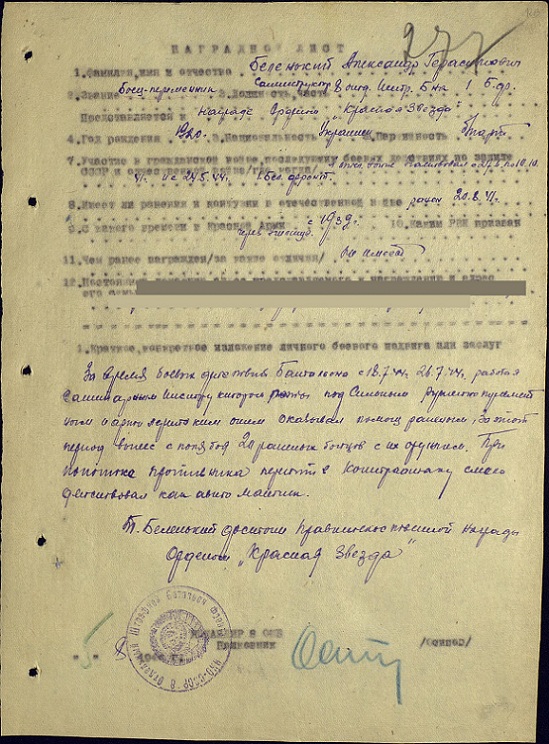 277
НАГРАДНОЙ ЛИСТ
1. Фамилия, имя и отчество Беленький Александр Герасимович
2. Звание Боец-переменник 3. Должность, часть Санинструктор 8 отд. штр. б-на 1 Б.фр.
Представляется к Награде Орденом „Красная Звезда"
4. Год рождения 1920. 5. Национальность Украинец 6. Партийность
7. Участие в гражданской войне, последующих боевых действиях по защите
СССР и отечественной войне
41. и с 24.5.44. 1 Бел. фронт.
8. Имеет ли ранения и контузии в отечественной войне ранен 20.8.41.
9. С какого времени в Красной Армии с 1939. 10. Каким РВК призван
11. Чем ранее награжден /за какие отличия/ не имеет
1. Краткое, конкретное изложение личного боевого подвига или заслуг
За время боевых действий Батальона с 18.7.44. 26.7.44. работая
Санитарным Инструктором роты под Сильным Ружейно пулеметным
и артиллерийским огнем оказывал помощь раненым, За этот
период вынес с поля боя 20 раненых бойцов с их оружием. При
попытках противника перейти в Контратаку смело
действовал как автоматчик.
Т. Беленький достоин Правительственной Награды
Орденом „Красная Звезда"
КОМАНДИР 8 ОШБ
Полковник
/Осипов/